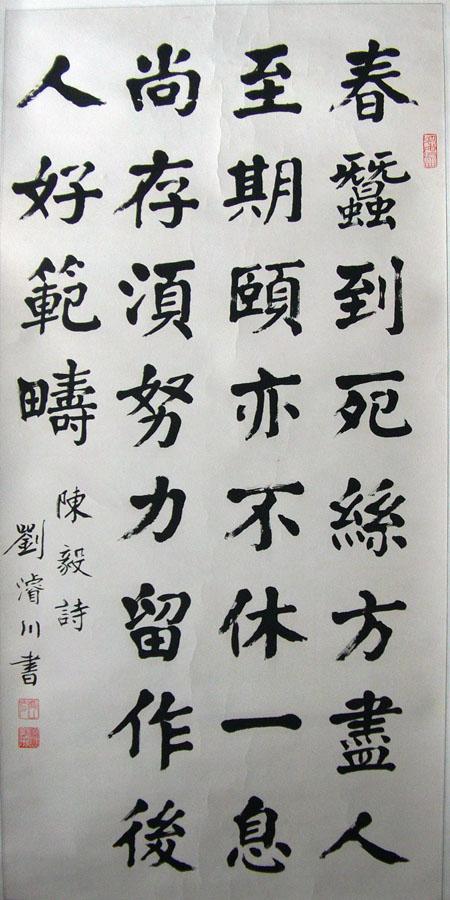 春蠶到死絲方盡人
至期頤亦不休一息
尚存須努力留作後
人好範疇
陳毅詩
劉濬川書